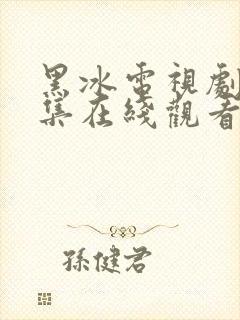 黑冰電視劇
集在綫觀看
孫健君